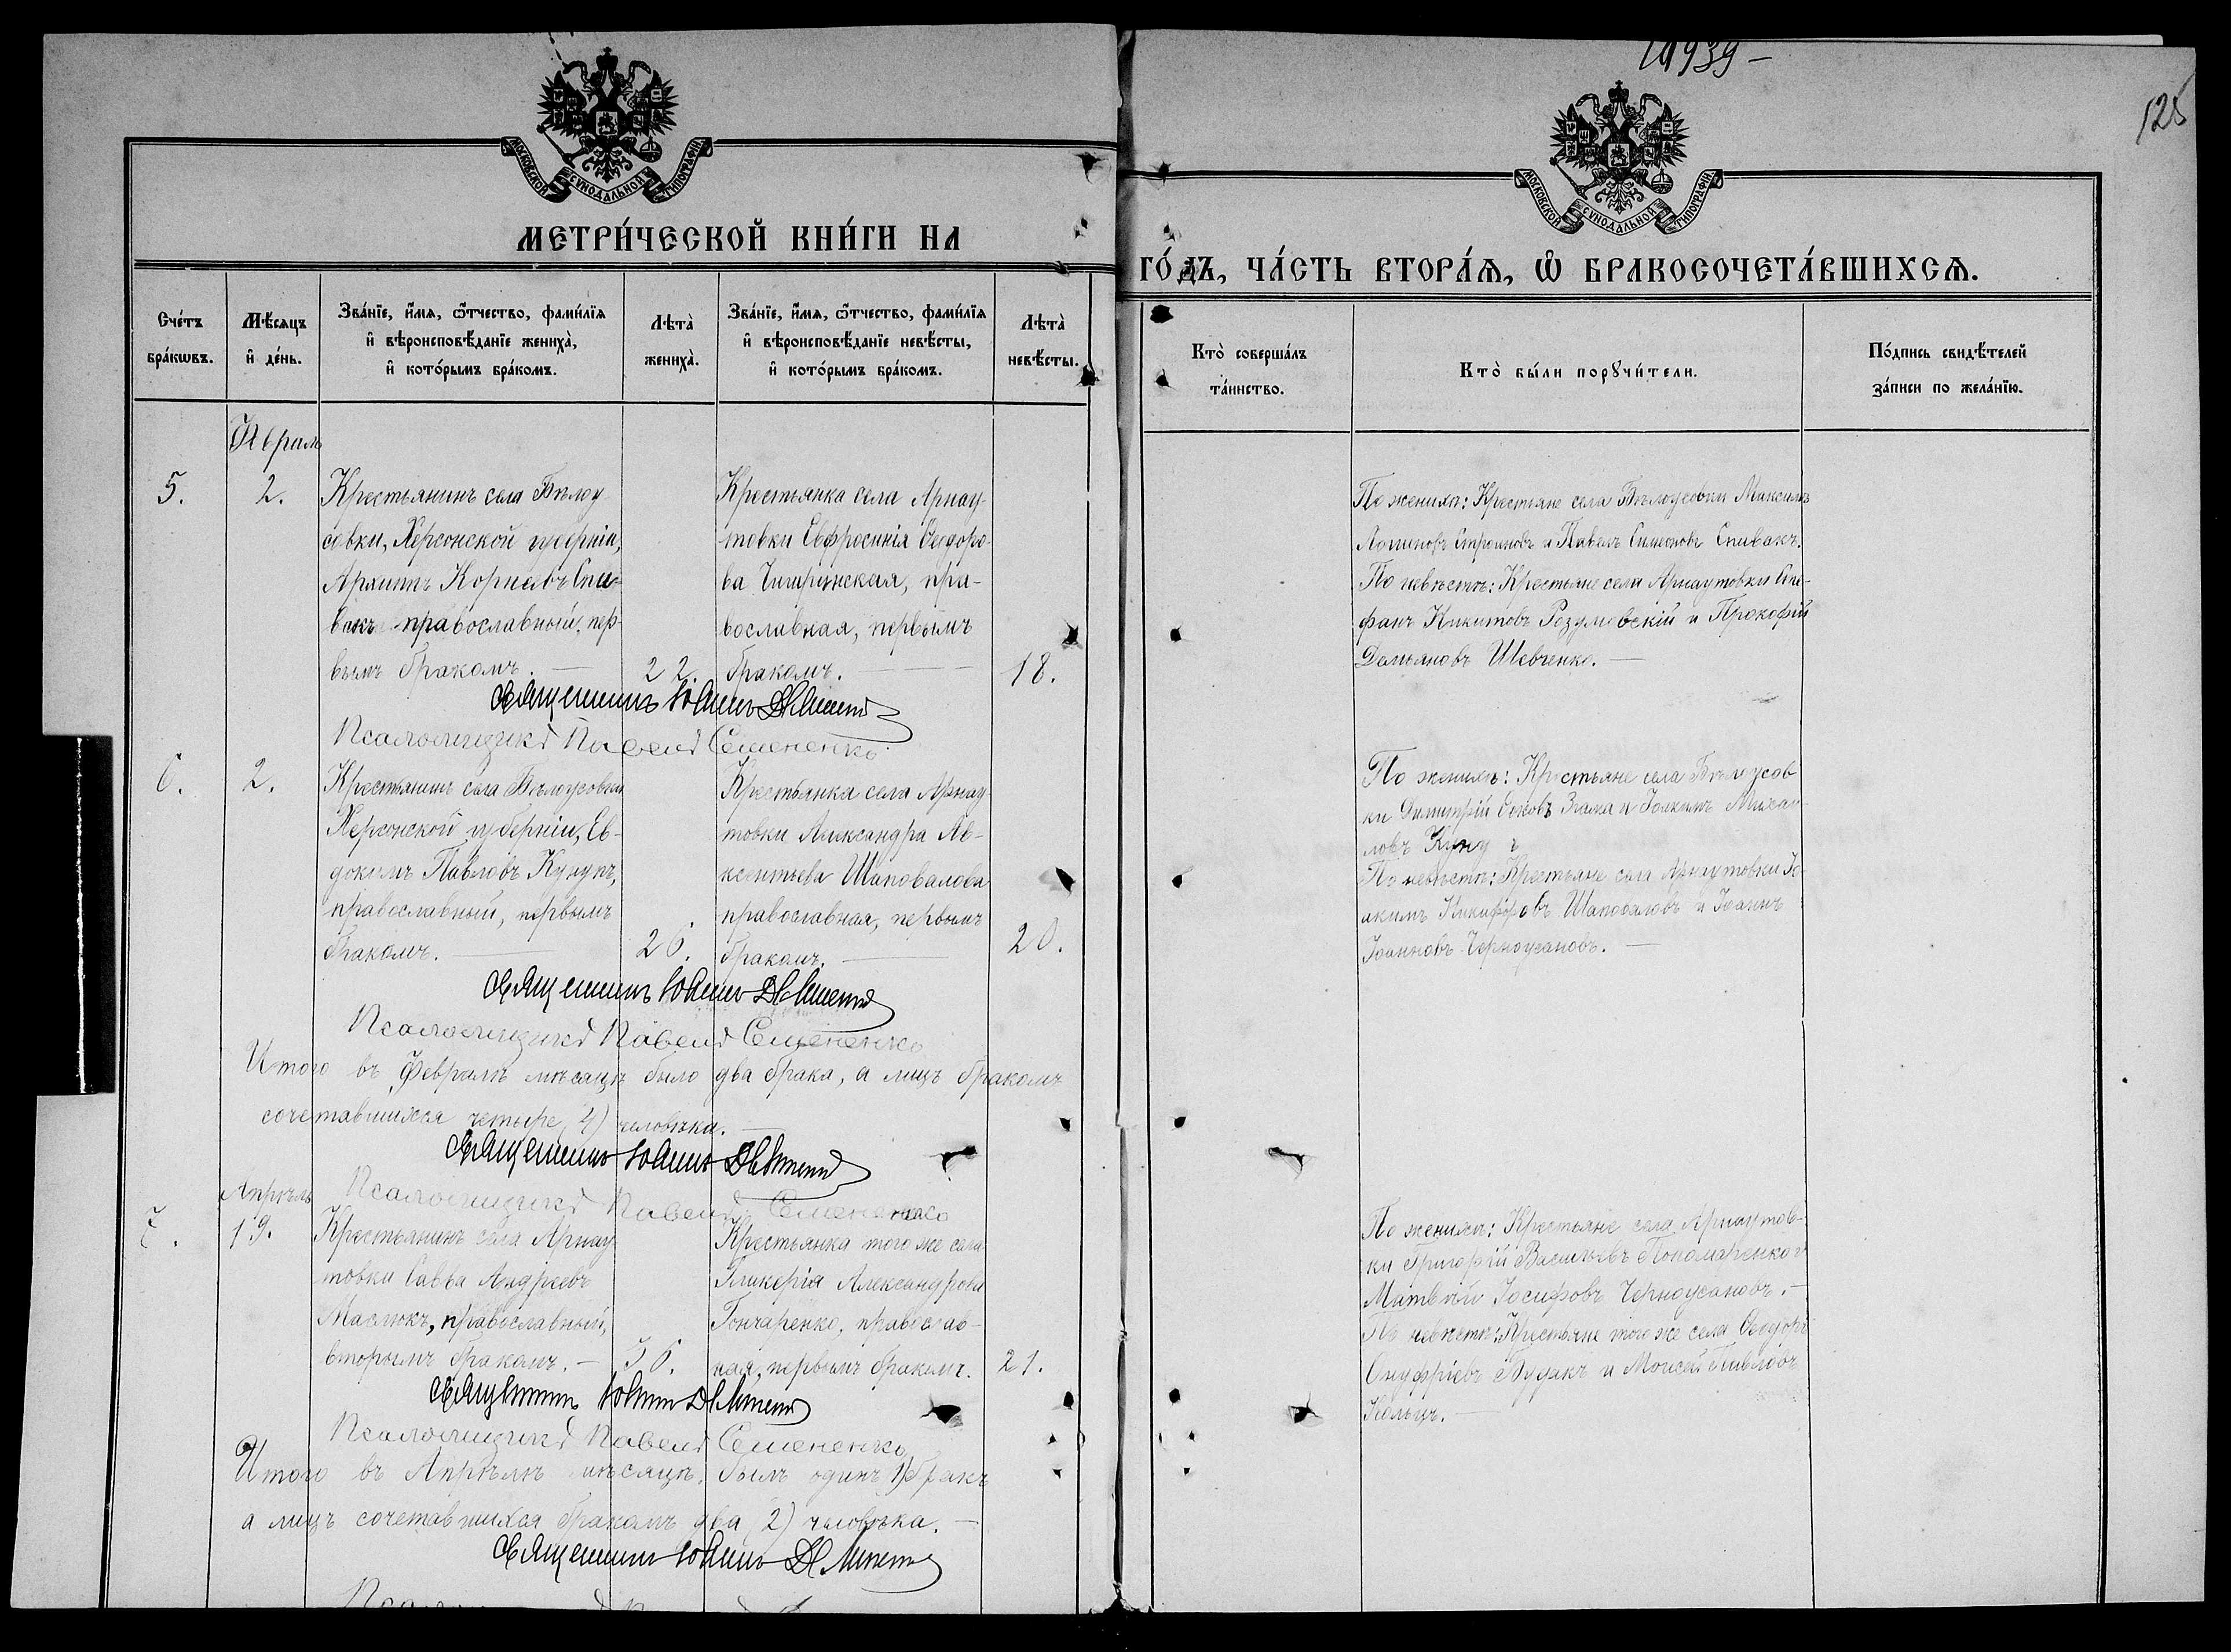 19939 –
125
МОСКОВСКОЙ СѴНОДАЛЬНОЙ ТИПОГРАФІИ
МОСКОВСКОЙ СѴНОДАЛЬНОЙ ТИПОГРАФІИ
МЕТРИ́ЧЕСКОЙ КНИ́ГИ НА
ГО́ДЪ, ЧА́СТЬ ВТОРА́Я, Ѽ БРАКОСОЧЕТА́ВШИХСЯ.
Сче́тъ бра́кѡвъ.
Мѣ́сяцъ и҆ де́нь.
Зва́нїе, и҆́мя, ѻ҆́тчество, фами́лїя
и҆ вѣроисповѣ́данїе жениха̀,
и҆ кото́рымъ бра́комъ.
Лѣта̀ жениха̀.
Зва́нїе, и҆́мя, ѻ҆́тчество, фами́лїя
и҆ вѣроисповѣ́данїе невѣ́сты,
и҆ кото́рымъ бра́комъ.
Лѣта̀ невѣ́сты.
Кто̀ соверша́лъ та́инство.
Кто̀ бы́ли порꙋчи́тели.
По́дпись свидѣ́телей за́писи по жела́нїю.
Февраль
5.
2.
Крестьянинъ села Бѣлоу-
совки, Херсонской губерніи,
Архипъ Корнѣевъ Спи-
вакъ православный, пер-
вымъ бракомъ. —
22.
Крестьянка села Арнау-
товки Евфросинія Ѳеодоро-
ва Чигринская, пра-
вославная, первымъ
бракомъ. —
18.
По женихѣ: Крестьяне села Бѣлоусовки Максимъ
Логиновъ Строяновъ и Павелъ Симеоновъ Спивакъ.
По невѣстѣ: Крестьяне села Арнаутовки Сте-
фанъ Никитовъ Розумовскій и Прокофій
Демьяновъ Шевченко. —
Священникъ Іоаннъ
Псаломщикъ Павелъ Семененко
6.
2.
Крестьянинъ села Бѣлоусовки
Херсонской губерніи, Ев-
докимъ Павловъ Кунупъ,
православный, первымъ
бракомъ. —
26.
Крестьянка села Арнау-
товки Александра Ав-
ксентьева Шаповалова
православная, первымъ
бракомъ. —
20.
По женихѣ: Крестьяне села Бѣлоусов
ки Димитрій и Іоакимъ Михаи-
ловъ
По невѣстѣ: Крестьяне села Арнаутовки Іо
акимъ Никифоровъ Шаповаловъ и Іоаннъ
Іоанновъ Черноусановъ. —
Священникъ Іоаннъ
Псаломщикъ Павелъ Семененко
Итого въ Февралѣ мѣсяцѣ было два брака, а лицъ бракомъ
сочетавшихся четыре, 4) человѣка. —
Священникъ Іоаннъ
Псаломщикъ Павелъ Семененко
Апрѣль
7.
19.
Крестьянинъ села Арнау
товки Савва Андреевъ
Маслюкъ, православный,
вторымъ бракомъ. —
36.
Крестьянка того же села
Гликерія Александрова
Гончаренко, православ-
ная, первымъ бракомъ.
21.
По женихѣ: Крестьяне села Арнаутов-
ки Григорій Васильевъ Пономаренко и
Матвѣй Іосифовъ Черноусановъ. —
По невѣстѣ: Крестьяне того же села Ѳеодоръ
Онуфріевъ Будакъ и Моисей Павловъ
Кольцъ. —
Священникъ Іоаннъ
Псаломщикъ Павелъ Семененко
Итого въ Апрѣлѣ мѣсяцѣ, былъ одинъ 1) бракъ
а лицъ сочетавшихся бракомъ два (2) человѣка. —
Священникъ Іоаннъ